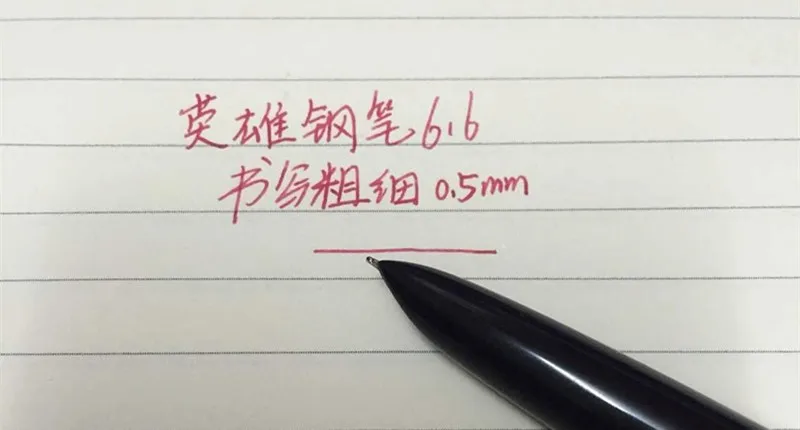 英雄钢笔616
书写粗细0.5mm